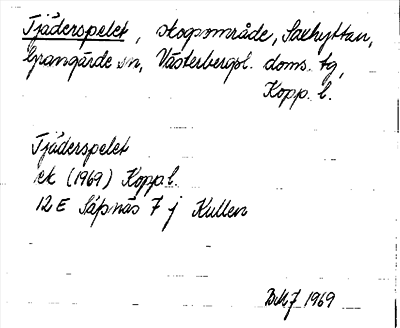 Tjäderspelet, skogsområde, Saxhyttan,
Grangärde sn, Västerbergsl. doms. tg,
Kopp. l.
Tjäderspelet
ek (1969) Kopp l.
12 E Säfsnäs 7 j Kullen
1969